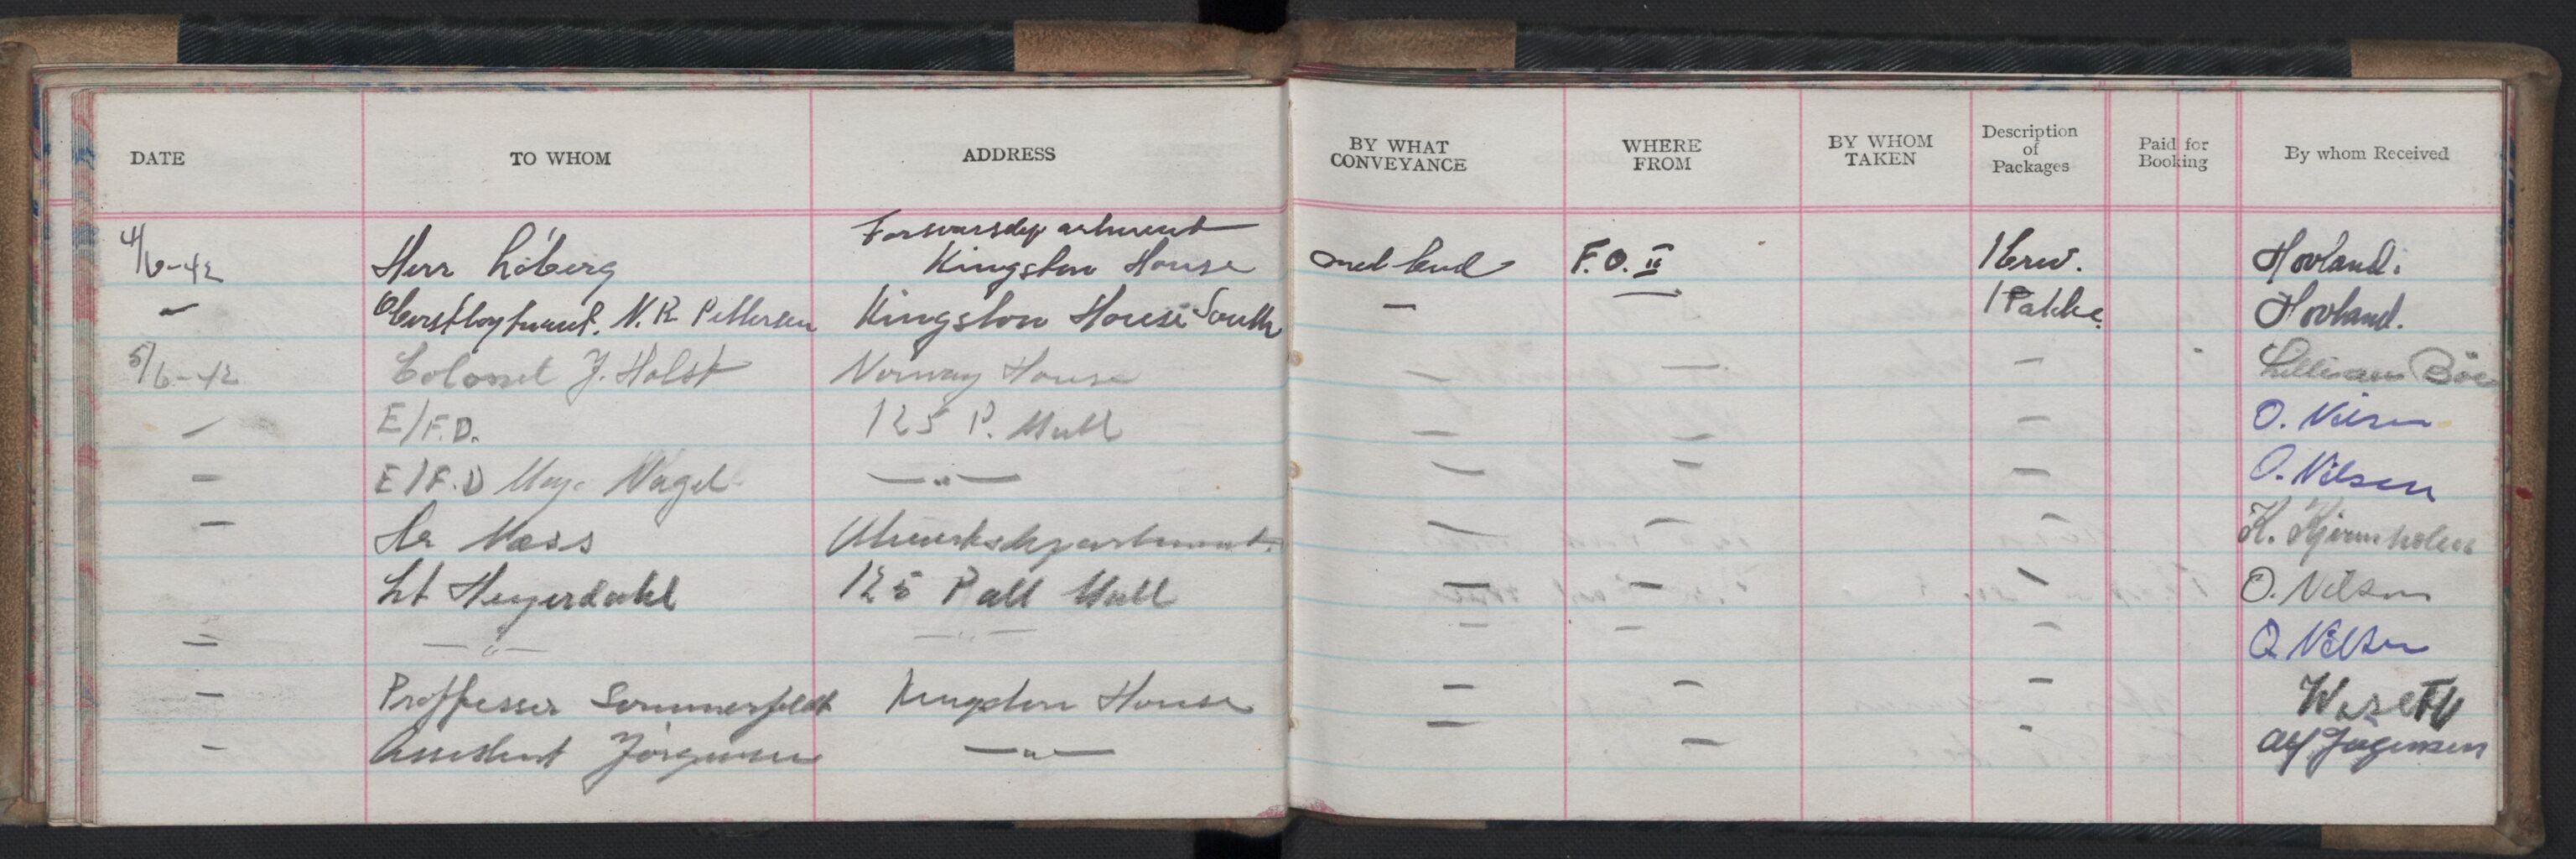 DATE TO WHOM ADDRESS BY WHAT CONVEYANCE WHERE FROM BY WHOM TAKEN Description of Packages Paid for Booking By whom Received
Forsvarsdepartment
4/6-42 Herr Löberg Kingston House med bud F.O. II 1 brev. Hovland.
— Oberstløytnant. N. R. Pettersen Kingston House South — — 1 Pakke. Hovland.
5/6-42 Colonel J. Holst Norway House — — — Lillivan Böe
— E/F.D. 125 P. Mall — — — O. Nilsen
— E/F.D Nagel —„— — — — O. Nilsen
— Hr Mass — — — K.
Lt Heyerdahl 125 Pall Mall — — — O. Nilsen
— —„— —„— — — — O. Nilsen
— Proffessor Sommerfeldt Kingston House — — —
— Assistent Jörgensen —„— — — — Alf Jörgensen